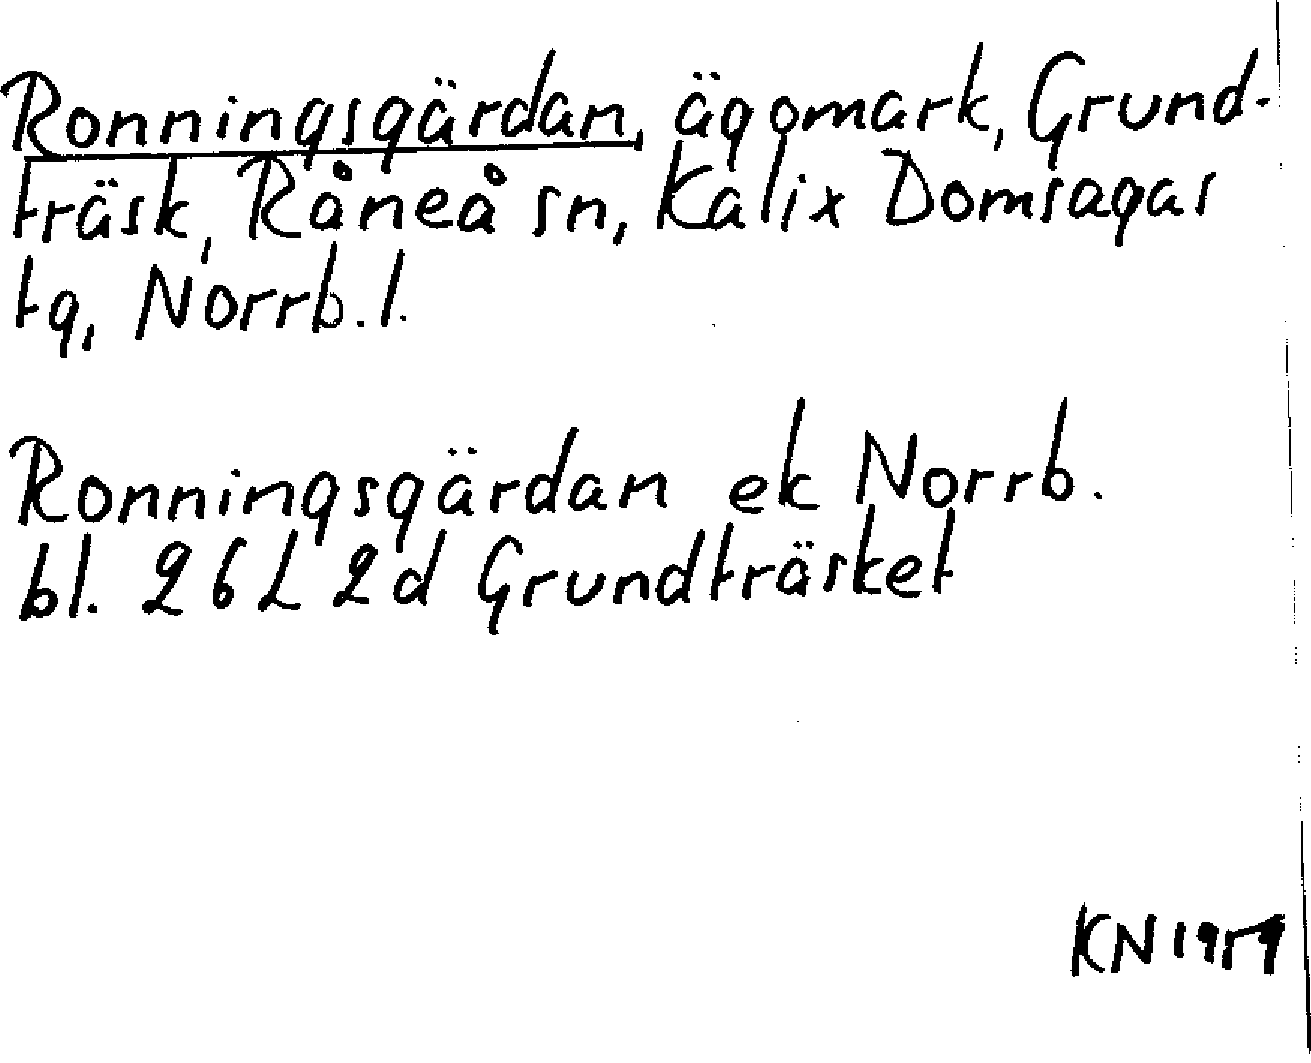 Ronningsgärdan, ägomark, Grund-
träsk, Råneå sn, Kalix Domsagas
tg, Norrb. l.
Ronningsgärdan ek Norrb.
bl. 26 L 2d Grundträsket
KN 1959